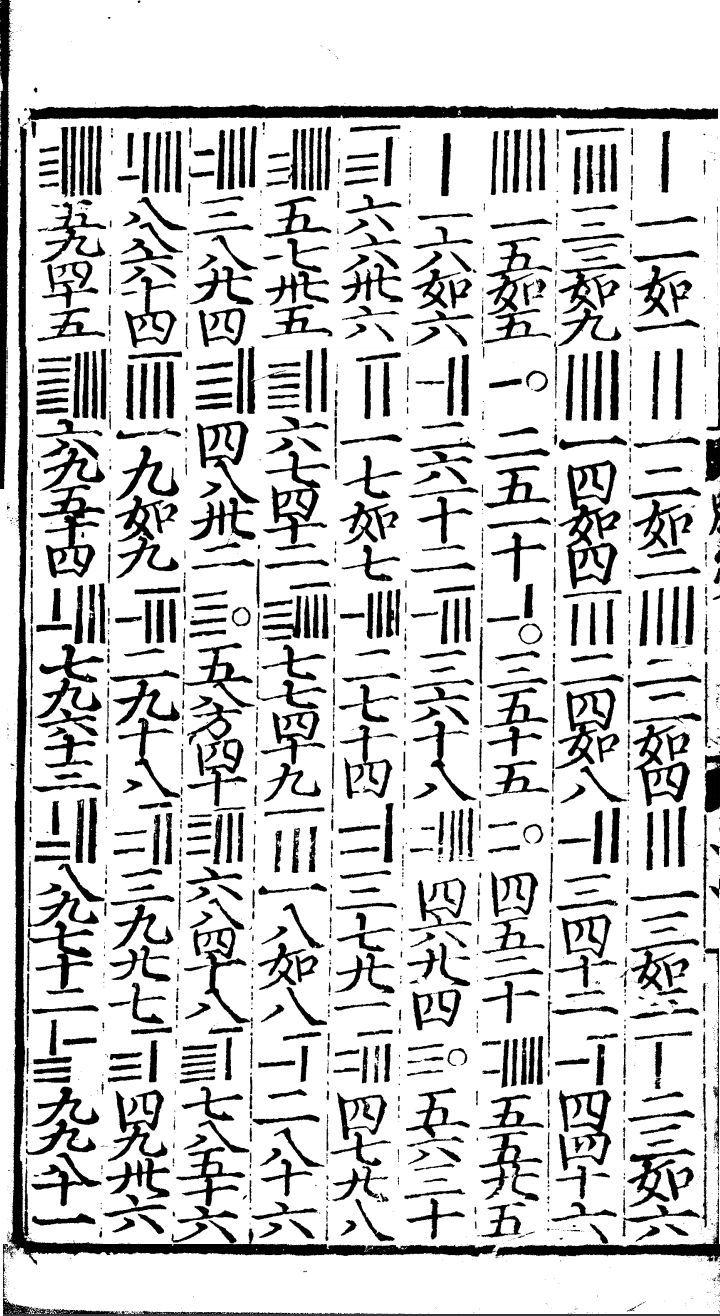 一一如一 一二如二 二二如四 一三如三 二三如六
三三如九 一四如四 二四如八 三四十二 四四十六
一五如五 二五一十 三五十五 四五二十 五五廿五
一六如六 二六十二 三六十八 四六廿四 五六三十
六六卅六 一七如七 二七十四 三七廿一 四七廿八
五七卅五 六七四十二 七七四十九 一八如八 二八十六
三八廿四 四八卅二 五八方四十 六八四十八 七八五十六
八八六十四 一九如九 二九十八 三九廿七 四九卅六
五九四十五 六九五十四 七九六十三 八九七十二 九九八十一